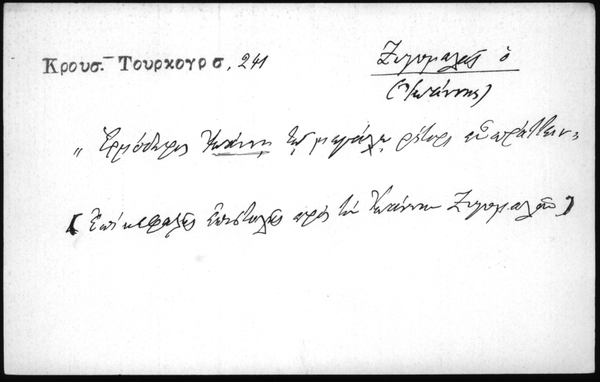 Κρουσ.- Τουρκογρσ, 241
Ζυγομαλᾶς ὁ
(Ἰωάννης)
"Ἑρμόδωρος Ἰωάννῃ τῷ μεγάλῳ ῥήτορι εὖ πράττειν"
[Ἐπικεφαλὶς ἐπιστολῆς πρὸς τὸν Ἰωάννην Ζυγομαλᾶν]